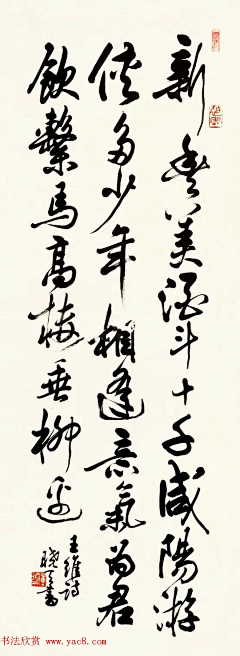 新豐美酒斗十千咸陽游
俠多少年相逢意氣為君
飲繫馬高樓垂柳邊
王維詩
曉雲書
书法欣赏 www.yac8.com